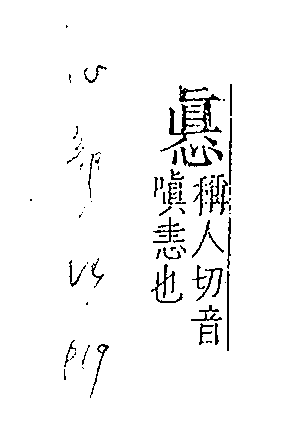 稱人切音
嗔恚也
心部
P19